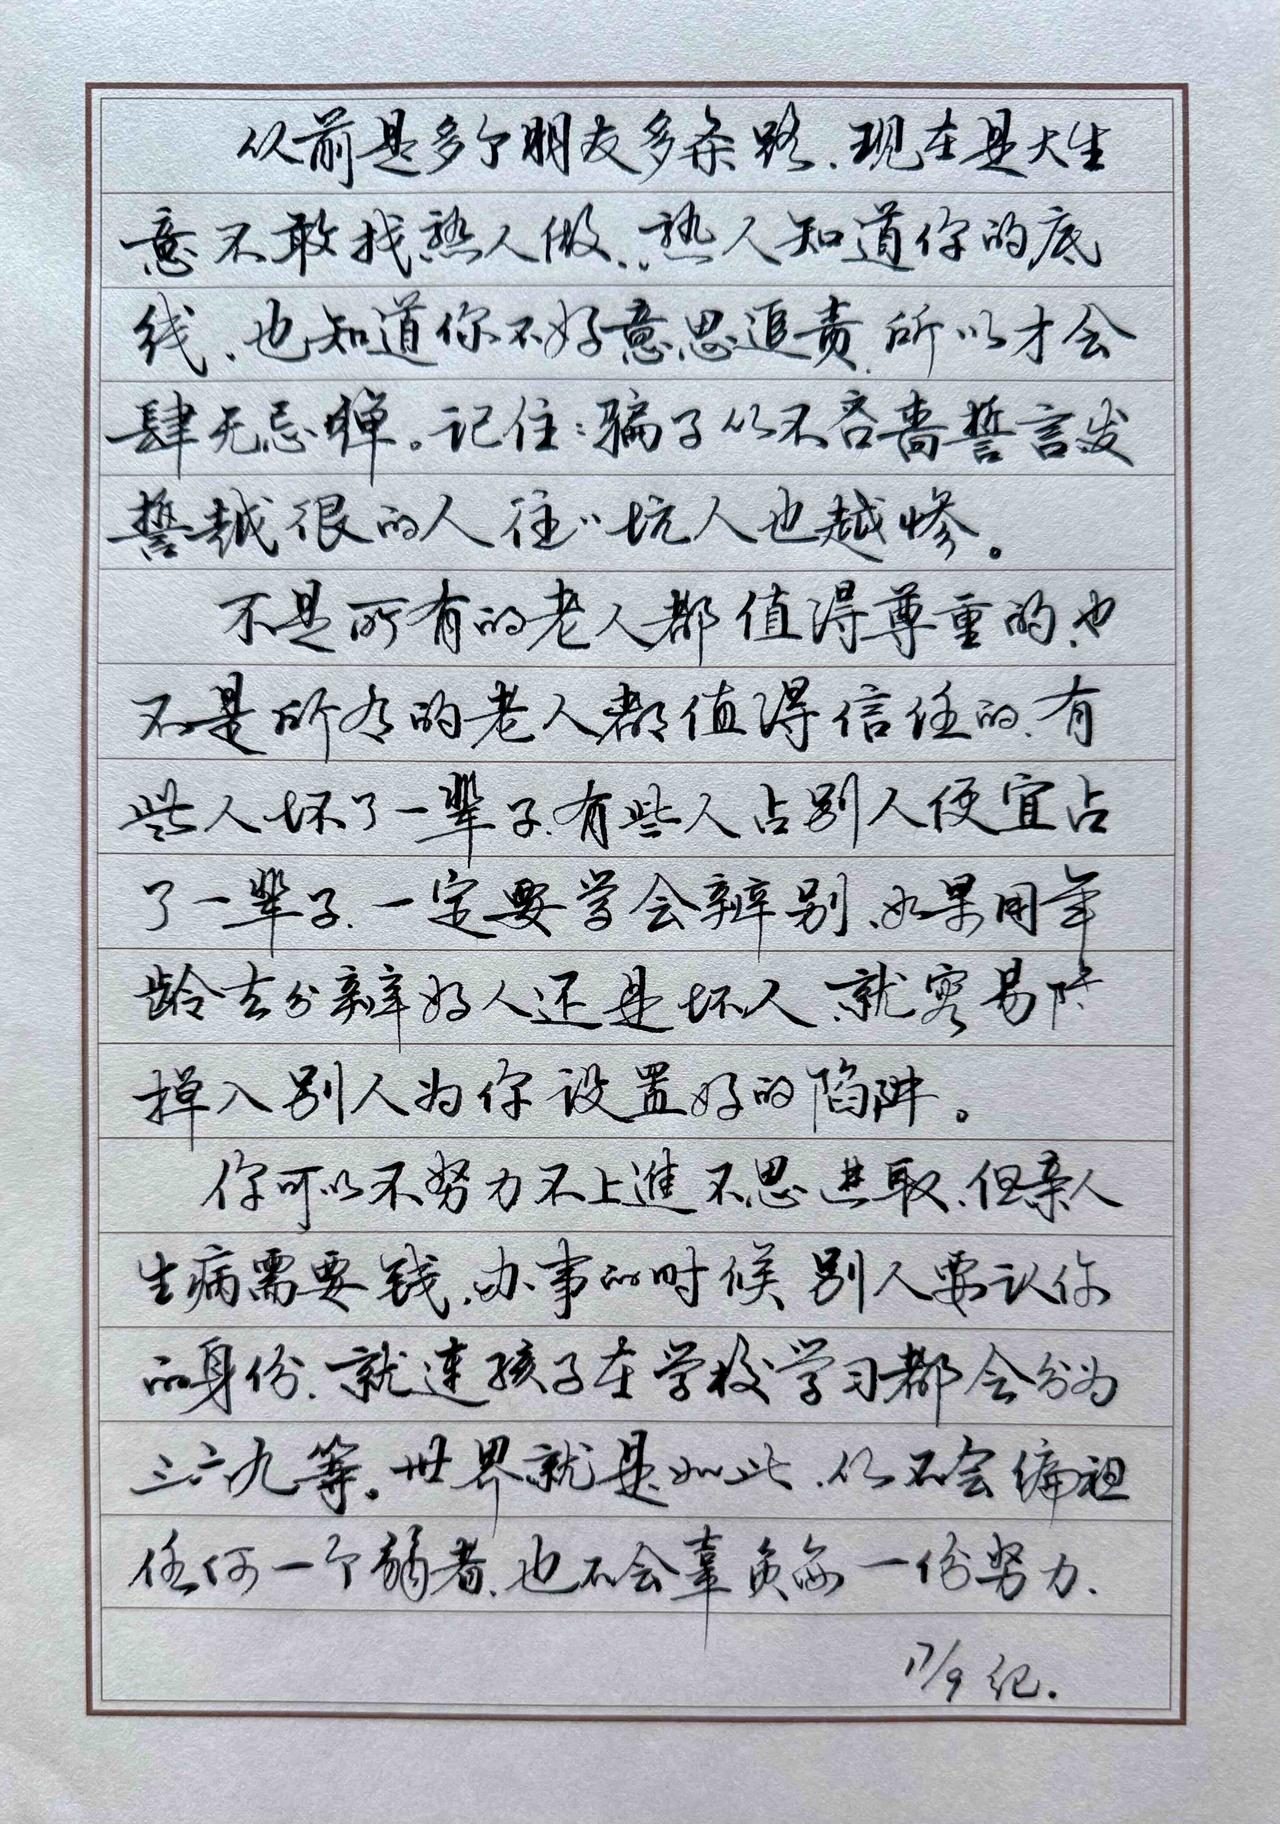 从前是多个朋友多条路、现在是大生
意不敢找熟人做、熟人知道你的底
线、也知道你不好意思追责、所以才会
肆无忌惮。记住：骗子从不吝啬誓言发
誓越很的人往〃坑人也越惨。
不是所有的老人都值得尊重的、也
不是所有的老人都值得信任的、有
些人坏了一辈子、有些人占别人便宜占
了一辈子、一定要学会辨别、如果用年
龄去分辨好人还是坏人、就容易
掉入别人为你设置好的陷阱。
你可以不努力不上進不思进取、但亲人
生病需要钱、办事的时候、别人要认你
的身份、就连孩子在学校学习都会分为
三六九等。世界就是如此、从不会偏袒
任何一个弱者、也不会辜负每一份努力、
17/9 纪.